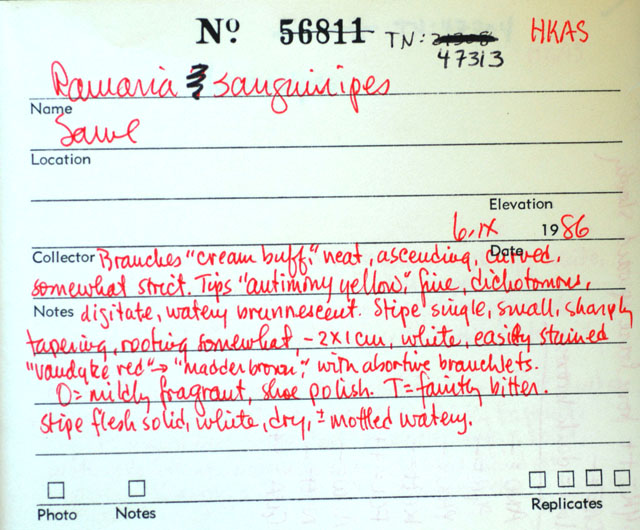 Nº 56811 TN: 47313 HKAS
Ramaria sanguinipes
Name
Same
Location
Elevation
6.IX 1986
Collector Date
Branches "cream buff," neat, ascending, curved,
somewhat strict. Tips "antimony yellow," fine, dichotomous,
Notes digitate, watery brunnescent. Stipe single, small, sharply
tapering, rooting somewhat, – 2x1 cm, white, easily stained
"vandyke red" → "madder brown," with abortive branchlets.
O = mildly fragrant, shoe polish. T = faintly bitter.
Stipe flesh solid, white, dry, ± mottled watery.
Photo Notes Replicates